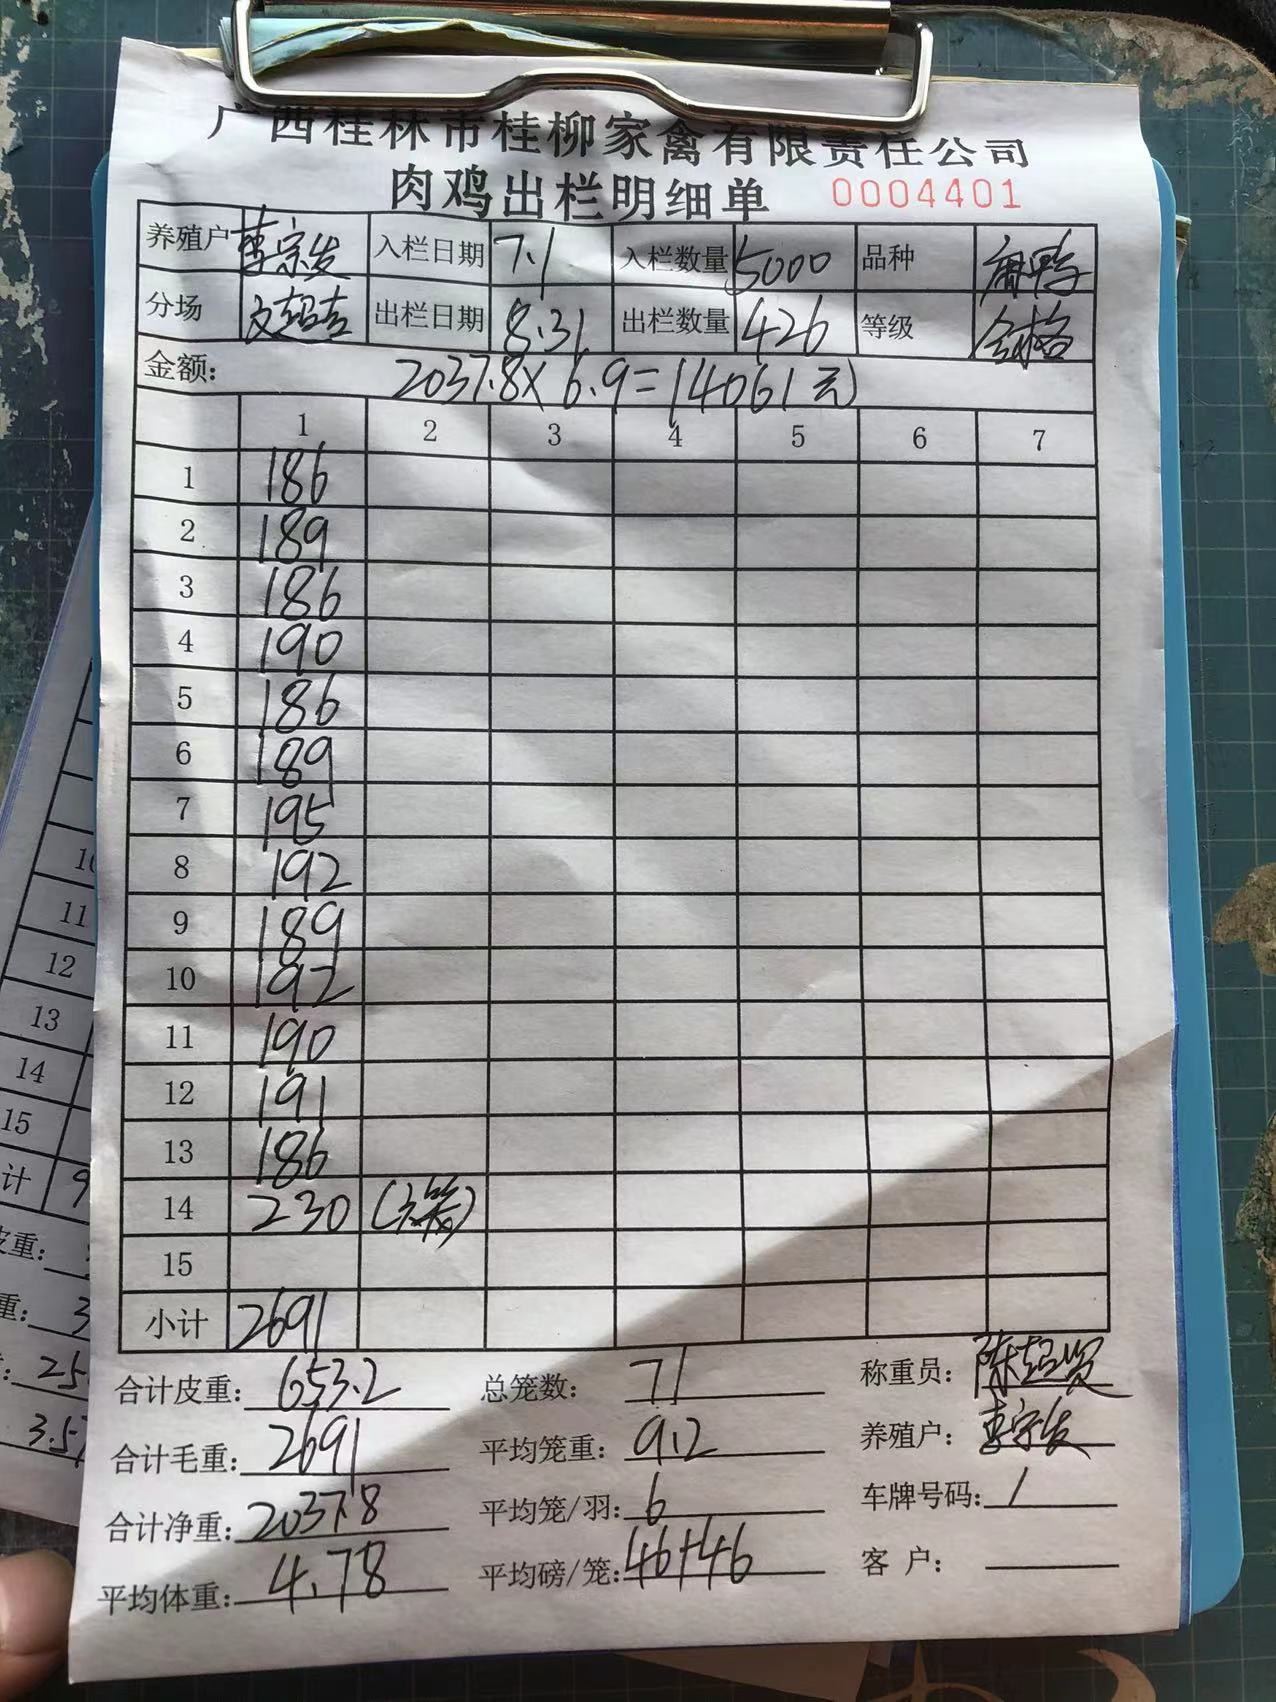 广西桂林市桂柳家禽有限责任公司
肉鸡出栏明细单 0004401
养殖户 李宗发 入栏日期 7.1 入栏数量 5000 品种
分场 出栏日期 8.31 出栏数量 426 等级 合格
金额: 2037.8×6.9=14061元
1 2 3 4 5 6 7
1 186
2 189
3 186
4 190
5 186
6 189
7 195
8 192
9 189
10 192
11 190
12 191
13 186
14 230
15
小计 2691
合计皮重: 653.2 总笼数: 71 称重员: 陈超贤
合计毛重: 2691 平均笼重: 9.2 养殖户: 李宗发
合计净重: 2037.8 平均笼/羽: 6 车牌号码: 1
平均体重: 4.78 平均磅/笼: 46+46 客户:
10
11
12
13
14
15
计 9
皮重:
重: 3
25
3.5